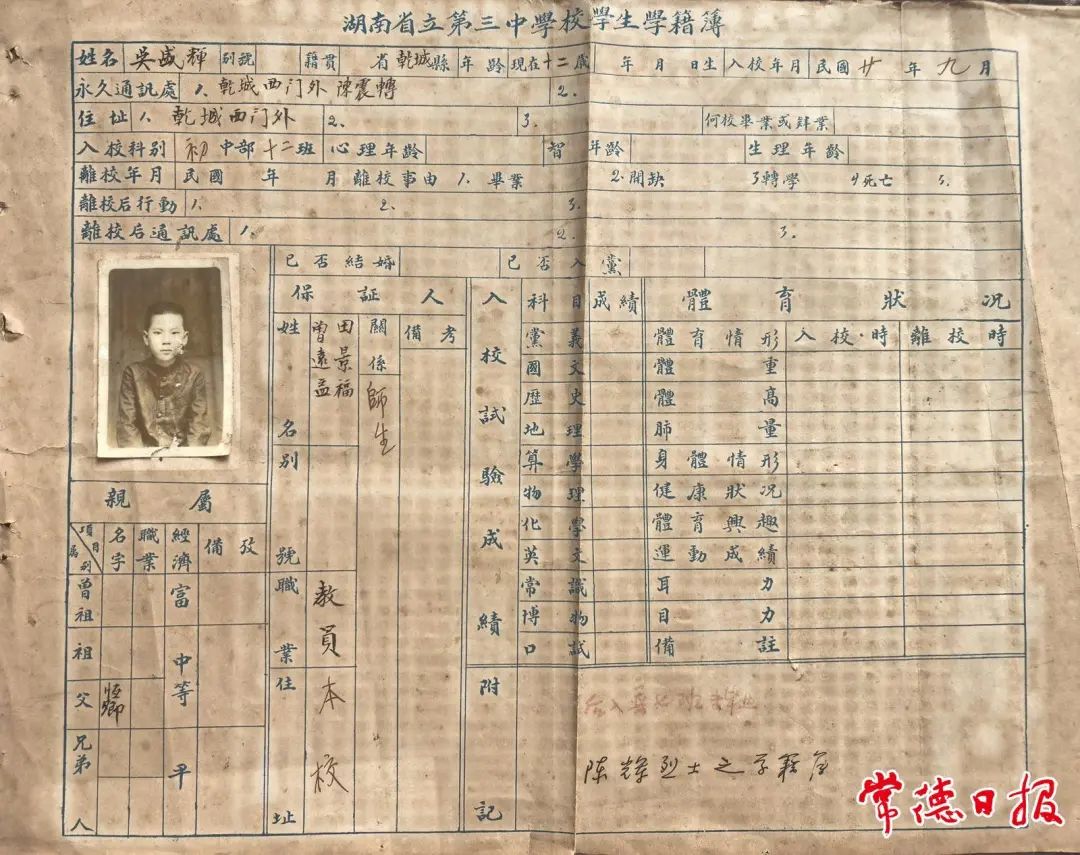 湖南省立第三中學校學生學籍簿
姓名 吳盛輝 别號 籍贯 省乾城縣 年龄 現在十二歲 年 月 日生 入校年月 民國廿年九月
永久通訊處 1. 乾城西门外陳震轉 2.
住址 1. 乾城西门外 2. 3. 何校畢業或肄業
入校科别 初中部十二班 心理年龄 智 年齡 生理年龄
離校年月 民國 年 月 離校事由 1. 畢業 2.開缺 3轉學 4死亡 5.
離校后行動 1. 2. 3.
離校后通訊處 1. 2. 3.
已否結婚 已否入黨
保証人
姓名 田景福 曾遠益
别號
關係 師生
備考
職業 教員
住址 本校
親屬
項目 属别 名字 職業 經濟 備攷
曾祖
祖
父 恆卿
兄弟 人
富 中等 平
入校試驗成績
科目 成績
黨義
國文
歴史
地理
算學
物理
化學
英文
常識
博物
口試
體育狀況
體育情形 入校時 離校時
體重
體高
肺量
身體情形
健康狀况
體育興趣
運動成績
耳力
目力
備註
附記
陈辉烈士之学籍
常德日报